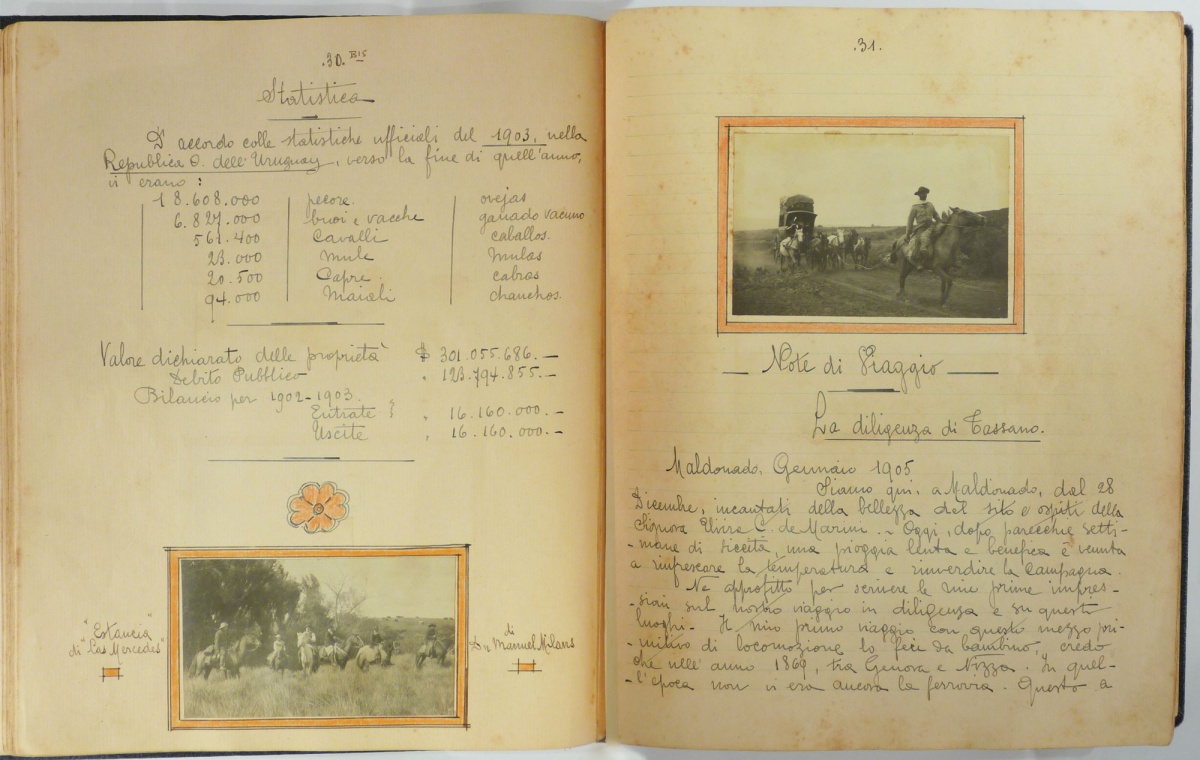 .30. BIS
Statistica
D'accordo colle statistiche ufficiali del 1903, nella
Republica O. dell'Uruguay, verso la fine di quell'anno,
vi erano:
18.608.000 pecore. ovejas
6.827.000 buoi e vacche ganado vacuno
561.400 Cavalli caballos.
23.000 Mule Mulas
20.500 Capre Cabras
94.000 Maiali chanchos.
Valore dichiarato delle proprietà $ 301.055.686.—
Debito Pubblico " 123.794.855.—
Bilancio per 1902-1903.
Entrate " 16.160.000.—
Uscite " 16.160.000.—
"Estancia
di "Las Mercedes"
di
Dn Manuel Milans
.31.
— Note di Viaggio —
La diligenza di Tassano.
Maldonado, Gennaio 1905
Siamo qui, a Maldonado, dal 28
Dicembre, incantati della bellezza del sito e ospiti della
Signora Elvira C. de Marini. - Oggi, dopo parecchie setti-
-mane di siccità, una pioggia lenta e benefica è venuta
a rinfrescare la temperatura e rinverdire la campagna.
Ne approfitto per scrivere le mie prime impres-
-sioni sul nostro viaggio in diligenza e su questi
luoghi. - Il mio primo viaggio con questo mezzo pri-
-mitivo di locomozione lo feci da bambino, credo
che nell'anno 1869, tra Genova e Nizza. In quel-
-l'epoca non vi era ancora la ferrovia. Questo a